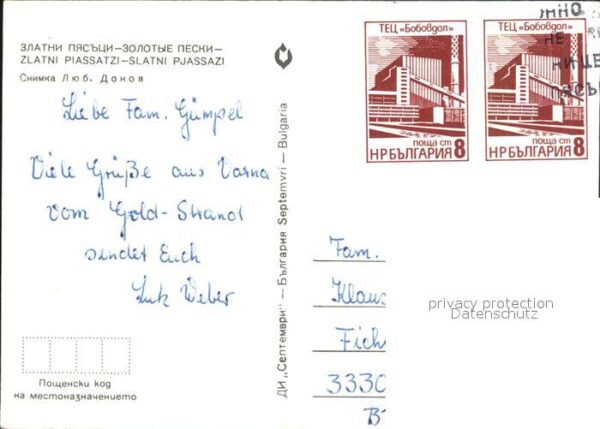 ЗЛАТНИ ПЯСЪЦИ—ЗОЛОТЫЕ ПЕСКИ—
ZLATNI PIASSATZI—SLATNI PJASSAZI
Снимка Люб. Донов
Liebe Fam. Gümpel
Viele Grüße aus Varna
vom Gold-Strand
sendet Euch
Lutz Weber
Пощенски код
на местоназначението
ДИ „Септември" — България Septemvri — Bulgaria
ТЕЦ „Бобовдол"
поща ст
НРБЪЛГАРИЯ 8
ТЕЦ „Бобовдол"
поща ст
НРБЪЛГАРИЯ 8
Fam.
Klaus
Fich
3330
privacy protection
Datenschutz